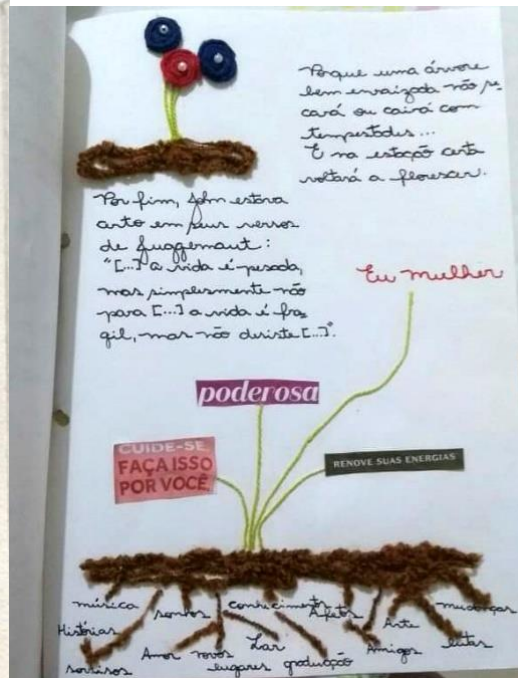 Porque uma árvore
bem enraizada não se
cará ou cairá com
tempestades...
E na estação certa
voltará a florescer.
Por fim, John estava
certo em seus versos
de Juggernaut:
"[...] a vida é pesada,
mas simplesmente não
para [...] a vida é frá
gil, mas não desiste [...]".
Eu mulher
poderosa
CUIDE-SE
FAÇA ISSO
POR VOCÊ
RENOVE SUAS ENERGIAS
música sonhos conhecimento Afetos Arte mudanças
Histórias Lar Amigos lutas
sorrisos Amor novos lugares graduação